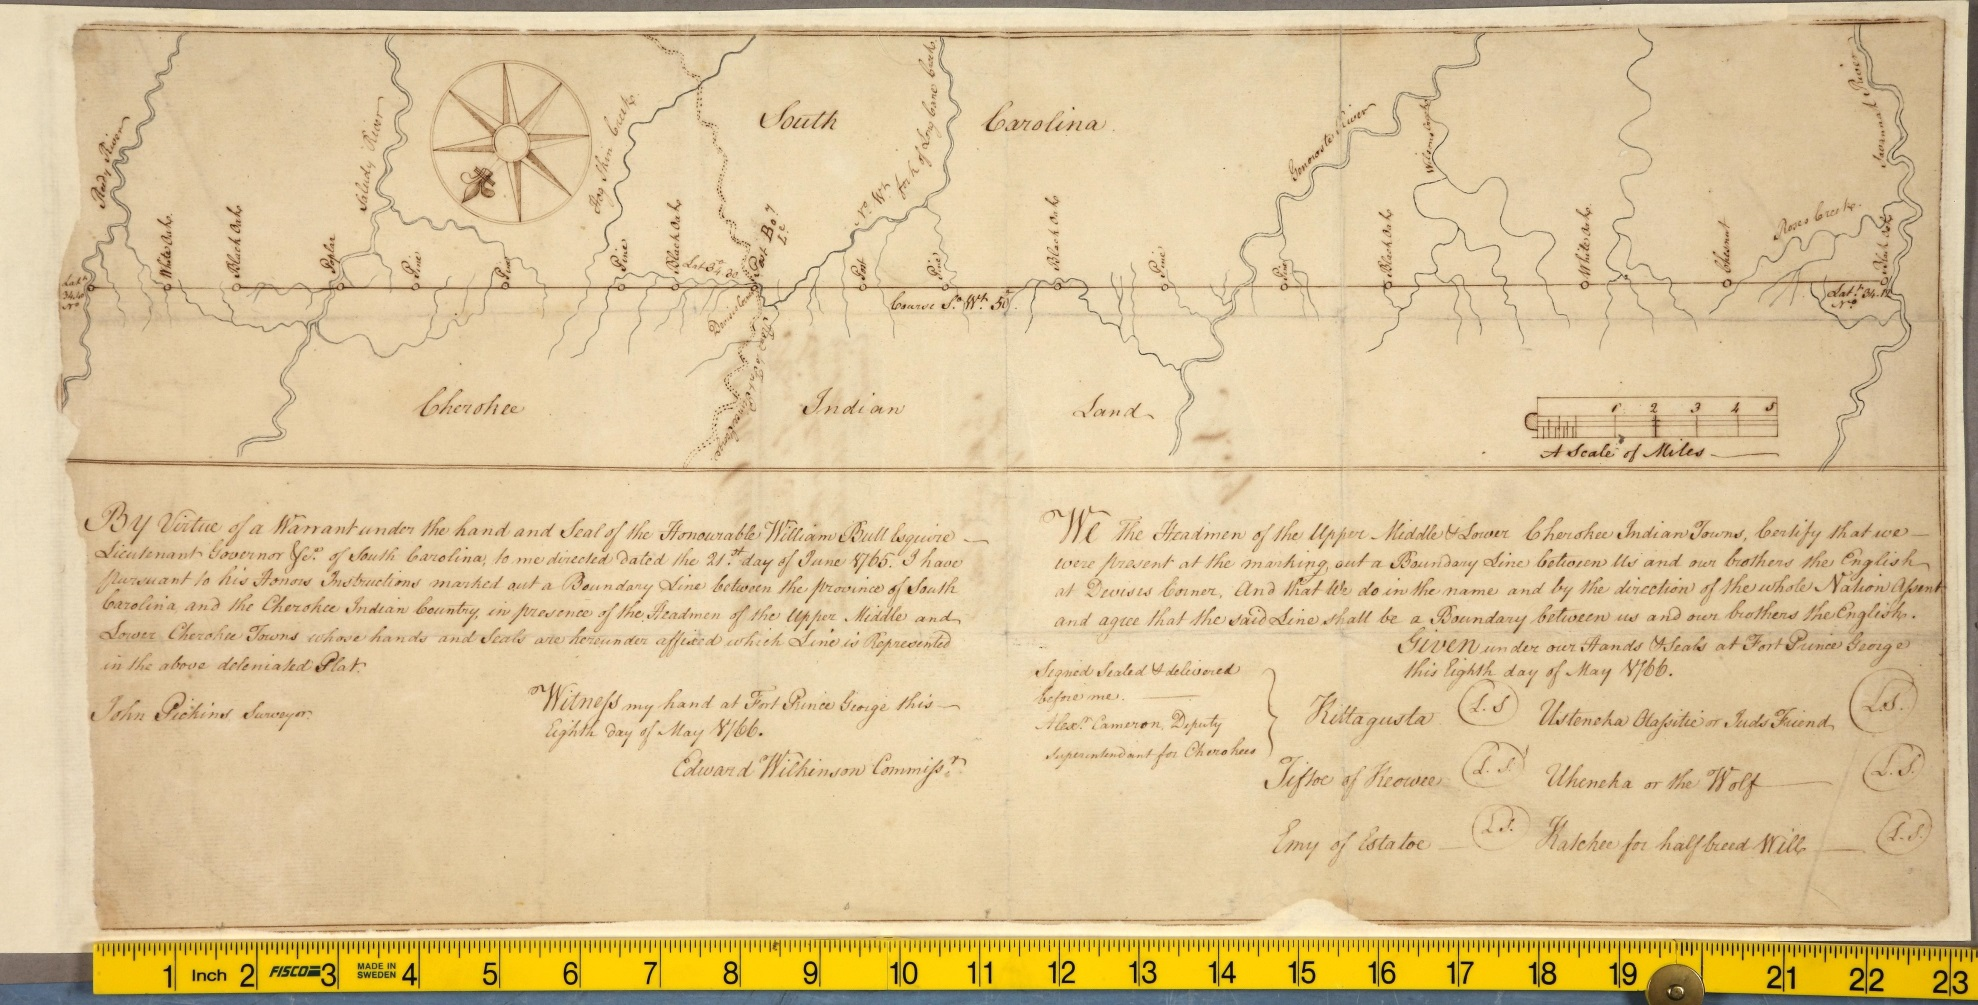 South Carolina
Reedy River
Saludy River
Hog Skin Creek
No. Wt. fork of Long Cane Creek
Generostee River
Wilsons Creek
Savannah River
Roses Creek
White Oak
Black Oak
Poplar
Pine
Pine
Pine
Black Oak
Post
Pine
Black Oak
Pine
Pine
Black Oak
White Oak
Chesnut
Black Oak
Course So. Wt. 50
Cherokee Indian Land
1 2 3 4 5
A Scale of Miles
BY Virtue of a Warrant under the hand and Seal of the Honourable William Bull Esquire
Lieutenant Governor &ca. of South Carolina, to me directed dated the 21st day of June 1765. I have
pursuant to his Honors Instructions marked out a Boundary Line between the province of South
Carolina, and the Cherokee Indian Country, in presence of the Headmen of the Upper Middle and
Lower Cherokee Towns whose hands and Seals are hereunder affixed which Line is Represented
in the above deleniated Plat.
John Pickins Surveyor.
Witness my hand at Fort Prince George this
Eighth day of May 1766.
Edward Wilkinson Commissr.
We the Headmen of the Upper Middle & Lower Cherokee Indian Towns, Certify that we
were present at the marking out a Boundary Line between Us and our brothers the English
at Dewises Corner, And that We do in the name and by the direction of the whole Nation Assent
and agree that the said Line shall be a Boundary between us and our brothers the English.
Given under our Hands & Seals at Fort Prince George
this Eighth day of May 1766.
Signed Sealed & delivered
before me.
Alexr. Cameron Deputy
Superintendant for Cherokees
Kittagusta L.S Usteneka Otassitie or Juds Friend L.S.
Tiftoe of Keowee L.S. Uheneka or the Wolf L.S.
Emy of Estatoe L.S. Katchee for halfbreed Will L.S.
1 Inch 2 FISCO 3 MADE IN SWEDEN 4 5 6 7 8 9 10 11 12 13 14 15 16 17 18 19 21 22 23